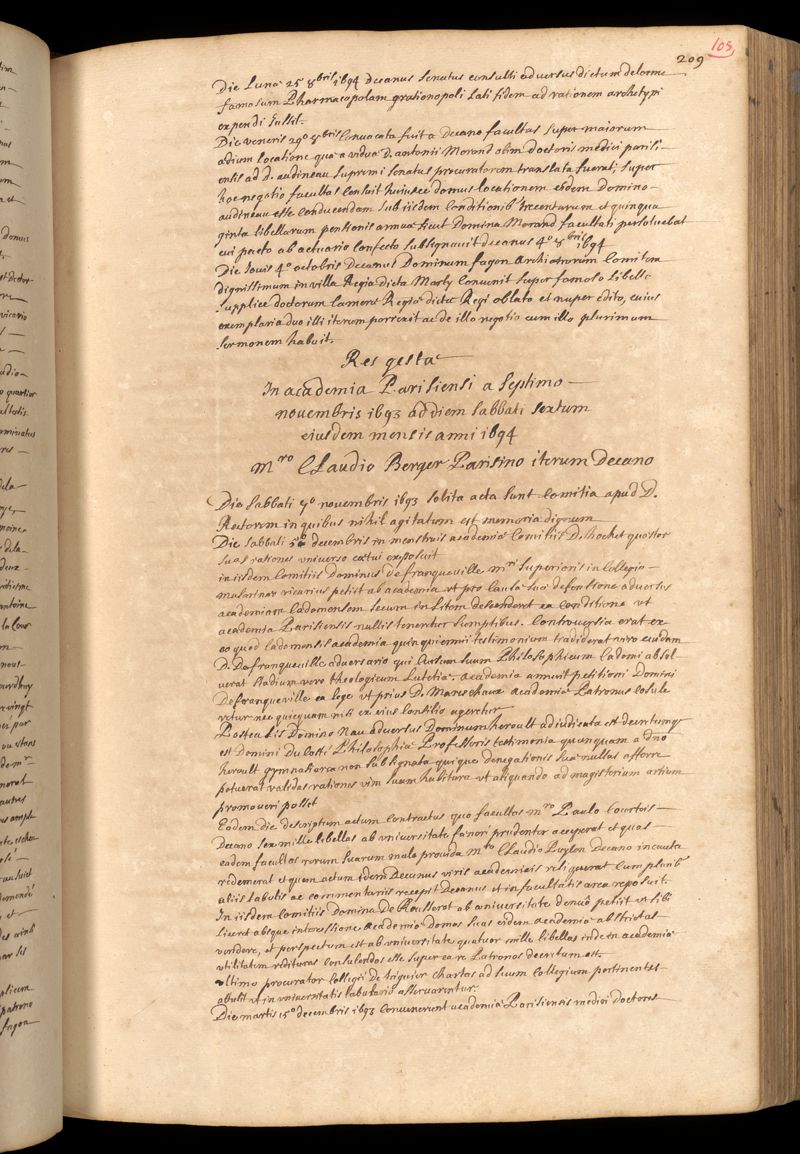 105
209
Die Lunæ 25 8bris 1694 Decanus senatus consulti adversus dictum delorme
famosum Pharmacopolam grationopoli lati fidem ad rationem archetypi
expendi jussit.
Die veneris 29º 8bris convocata fuit a Decano facultas super maiorum
ædium locatione quæ a vidua D. antonii Morand olim doctoris medici parisi-
ensis ad D. audineau supremi senatus procuratorem translata fuerat; super
hoc negotio facultas censuit huiusce domus locationem eidem Domino-
audineau esse conducendam sub iisdem conditionib' trecentarum et quinqua
ginta libellarum pensionis annuæ sicut Domina Morand facultati persoluebat
cui pacto ab actuario confecto subsignauit decanus 4º 8bris 1694
Die Iouis 4º octobris Decanus Dominum fagon Archiatrorum Comitem
dignissimum in villa Regia dicta Marly conuenit super famoso libello
supplice doctorum cameræ Regiæ dictæ Regi oblato et nuper edito, cuius
exemplaria duo illi iterum porrexit ac de illo negotio cum illo plurimum
sermonem habuit.
Res gestæ
In academia Parisiensi a septimo-
novembris 1693 ad diem sabbati sextum
eiusdem mensis anni 1694
Mro Claudio Berger Parisino iterum Decano
Die sabbati 7º novembris 1693 solita acta sunt comitia apud D.
Rectorem in quibus nihil agitatum est memoria dignum
Die sabbati 5º decembris in menstruis academiæ comitiis D. Rochet quæstor
suas rationes universo cætui exposuit
in iisdem comitiis Dominus defranqueuille mri superioris in collegio-
mazarinæo vicarius petiit ab academia ut pro causæ suæ defensione adversus
academiam Cadomensem secum in litem descenderet ea conditione ut
academia Parisiensis nullis teneretur sumptibus. Controversia erat ex
eo quod cadomensis academia quinquennii testimonium tradiderat viro cuidam
D. Defranqueuille adversario qui cursum suum Philosophicum Cadomi absol
verat stadium vero theologicum Lutetiæ. academia annuit petitioni Domini
Defranqueville ea lege ut prius D. Mareschaux academiæ Patronus consule
retur nec quicquam nisi ex eius consilio ageretur
Postea lis Domino Nau adversus Dominum heroult adiudicata est decretumq;
est Domini Du Costé Philosophiæ Professoris testimonia quamquam a dno
heroult gymnasiarca non subsignata quique denegationis suæ nullas afferre
potuerat validas rationes vim suam habitura ut aliquando ad magisterium artium
promoveri posset
Eodem die descriptum actum contractus quo facultas mro Paulo Courtois-
Decano sex mille libellas ab universitate fænori prudenter acceperat et quas-
eadem facultas rerum suarum male provida mro Claudio Puylon Decano incauta
redemerat et quem actum idem Decanus viris academicis reliquerat cum plurib'
aliis tabulis ac commentariis recepit Decanus et in facultatis arca reposuit.
In iisdem comitiis Domina De Rousserot ab universitate denuo petiit ut sibi
liceret absque intercessione academiæ Domos suas eidem academiæ abstrictas
vendere, et perspectum est ab universitate quatuor mille libellas inde in academiæ
utilitatem redituras consulendos esse super ea re Patronos decretum est.
ultimo procurator collegii de triquier chartas ad suum collegium pertinentes
attulit ut in universitatis tabulario asservarentur.
Die martis 15º decembris 1693 Convenerunt academiæ Parisiensis medici doctores